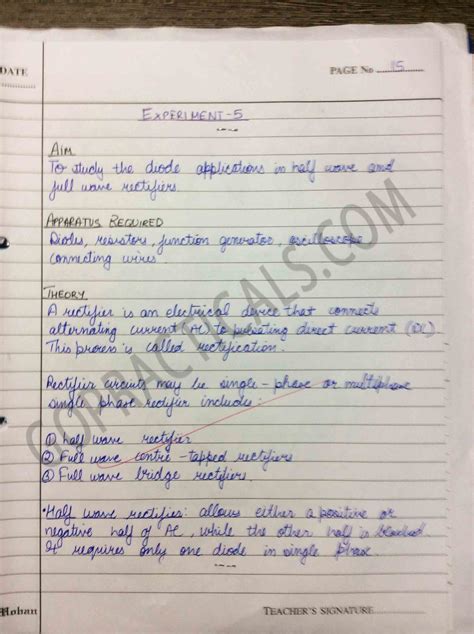 DATE
PAGE No 15
EXPERIMENT-5
AIM
To study the diode applications in half wave and
full wave rectifiers.
APPARATUS REQUIRED
Diodes, resistors, function generator, oscilloscope
connecting wires.
THEORY
A rectifier is an electrical device that connects
alternating current (AC) to pulsating direct current (DC)
This process is called rectification.
Rectifier circuits may be single-phase or multiphase
single phase rectifier includes:
① Half wave rectifier
② Full wave centre-tapped rectifiers
③ Full wave bridge rectifiers.
• Half wave rectifiers: allows either a positive or
negative half of AC, while the other half is blocked
It requires only one diode in single phase.
Mohan
TEACHER'S SIGNATURE
COPRACTICALS.COM